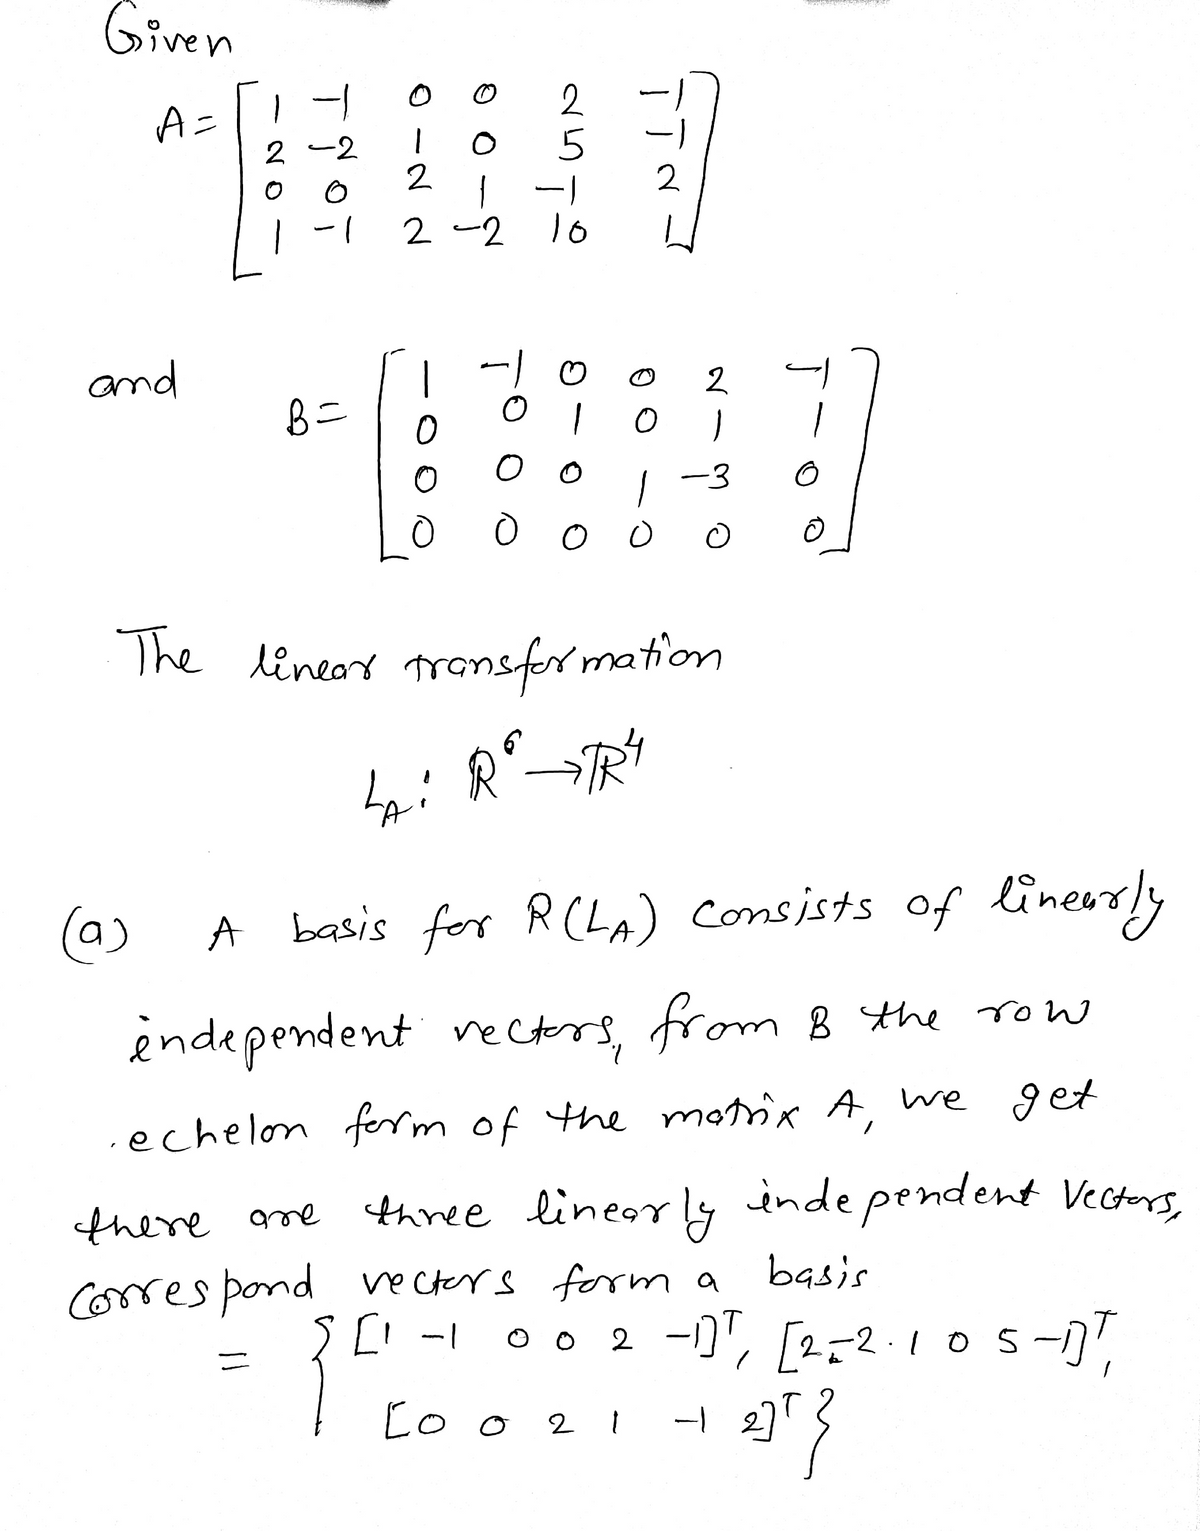 Given
A = [ 1 -1 0 0 2 -1
2 -2 1 0 5 -1
0 0 2 1 -1 2
1 -1 2 -2 10 1 ]
and B = [ 1 -1 0 0 2 -1
0 0 1 0 1 1
0 0 0 1 -3 0
0 0 0 0 0 0 ]
The linear transformation
L_A : ℝ⁶ → ℝ⁴
(a) A basis for R(L_A) consists of linearly
independent vectors, from B the row
echelon form of the matrix A, we get
there are three linearly independent vectors,
correspond vectors form a basis
= { [1 -1 0 0 2 -1]ᵀ, [2 -2 1 0 5 -1]ᵀ,
[0 0 2 1 -1 2]ᵀ }